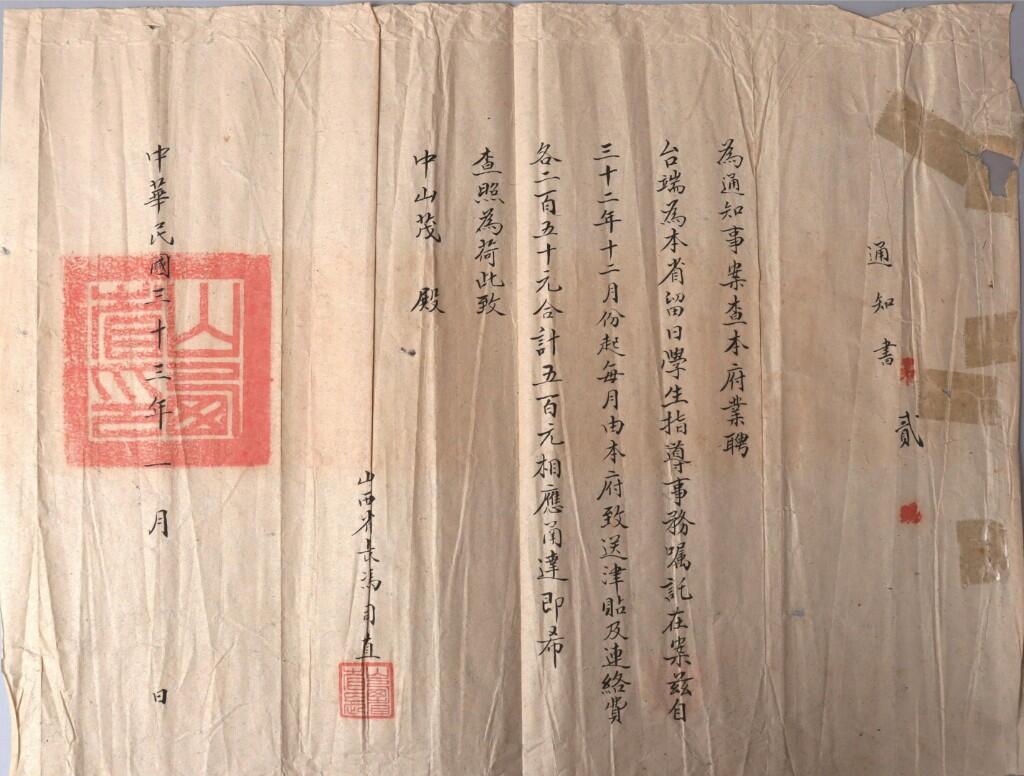 通知書
貳
為通知事案查本府業聘
台端為本省留日學生指導事務嘱託在案茲自
三十二年十二月份起每月由本府致送津貼及連絡費
各二百五十元合計五百元相應甬達即希
查照為荷此致
中山茂 殿
山西省長馮司直
中華民國三十三年一月 日